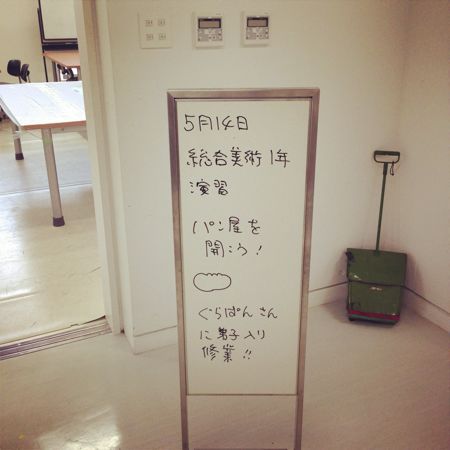 5月14日
総合美術1年
演習
パン屋を
開こう!
ぐらぱんさん
に弟子入り
修業!!